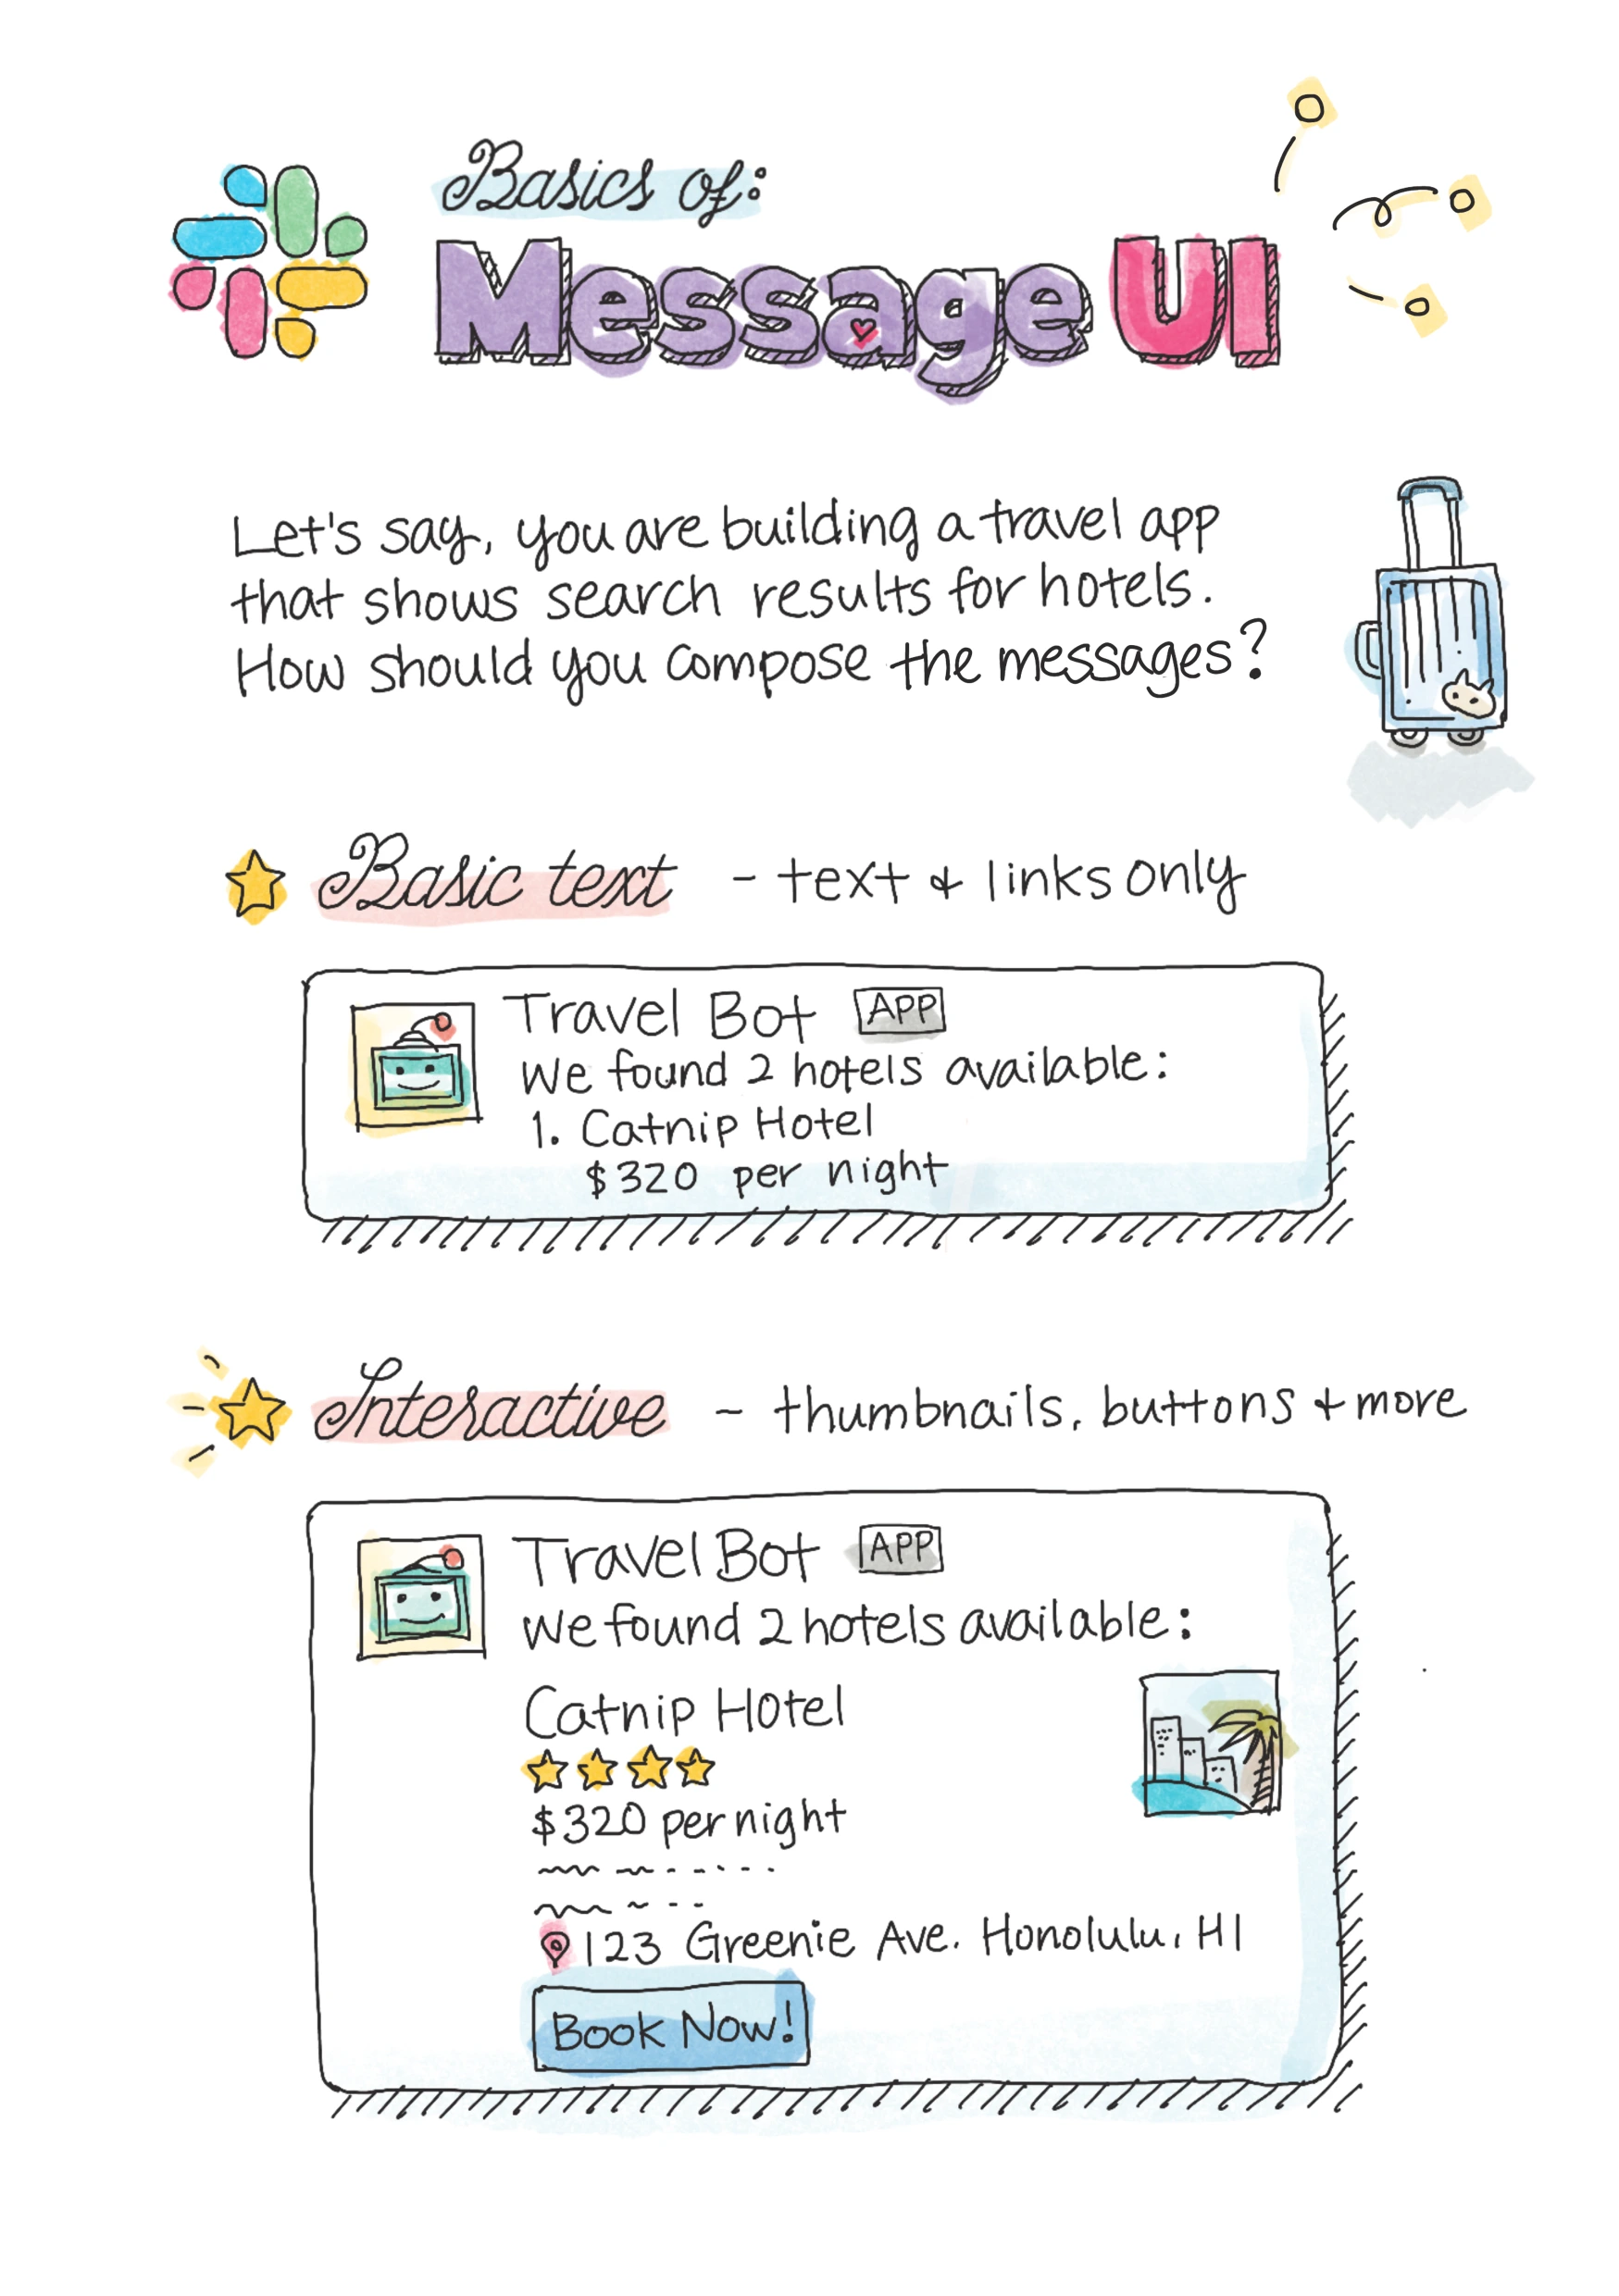 Basics of:
Message UI
Let's say, you are building a travel app
that shows search results for hotels.
How should you compose the messages?
Basic text - text & links only
Travel Bot APP
We found 2 hotels available:
1. Catnip Hotel
$320 per night
Interactive - thumbnails, buttons + more
Travel Bot APP
We found 2 hotels available:
Catnip Hotel
$320 per night
123 Greenie Ave. Honolulu, HI
Book Now!